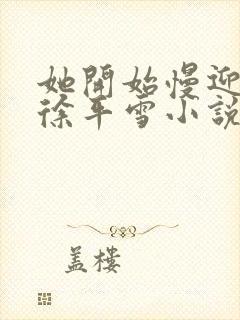 她開始慢迎
徐平雪小說
盖樓